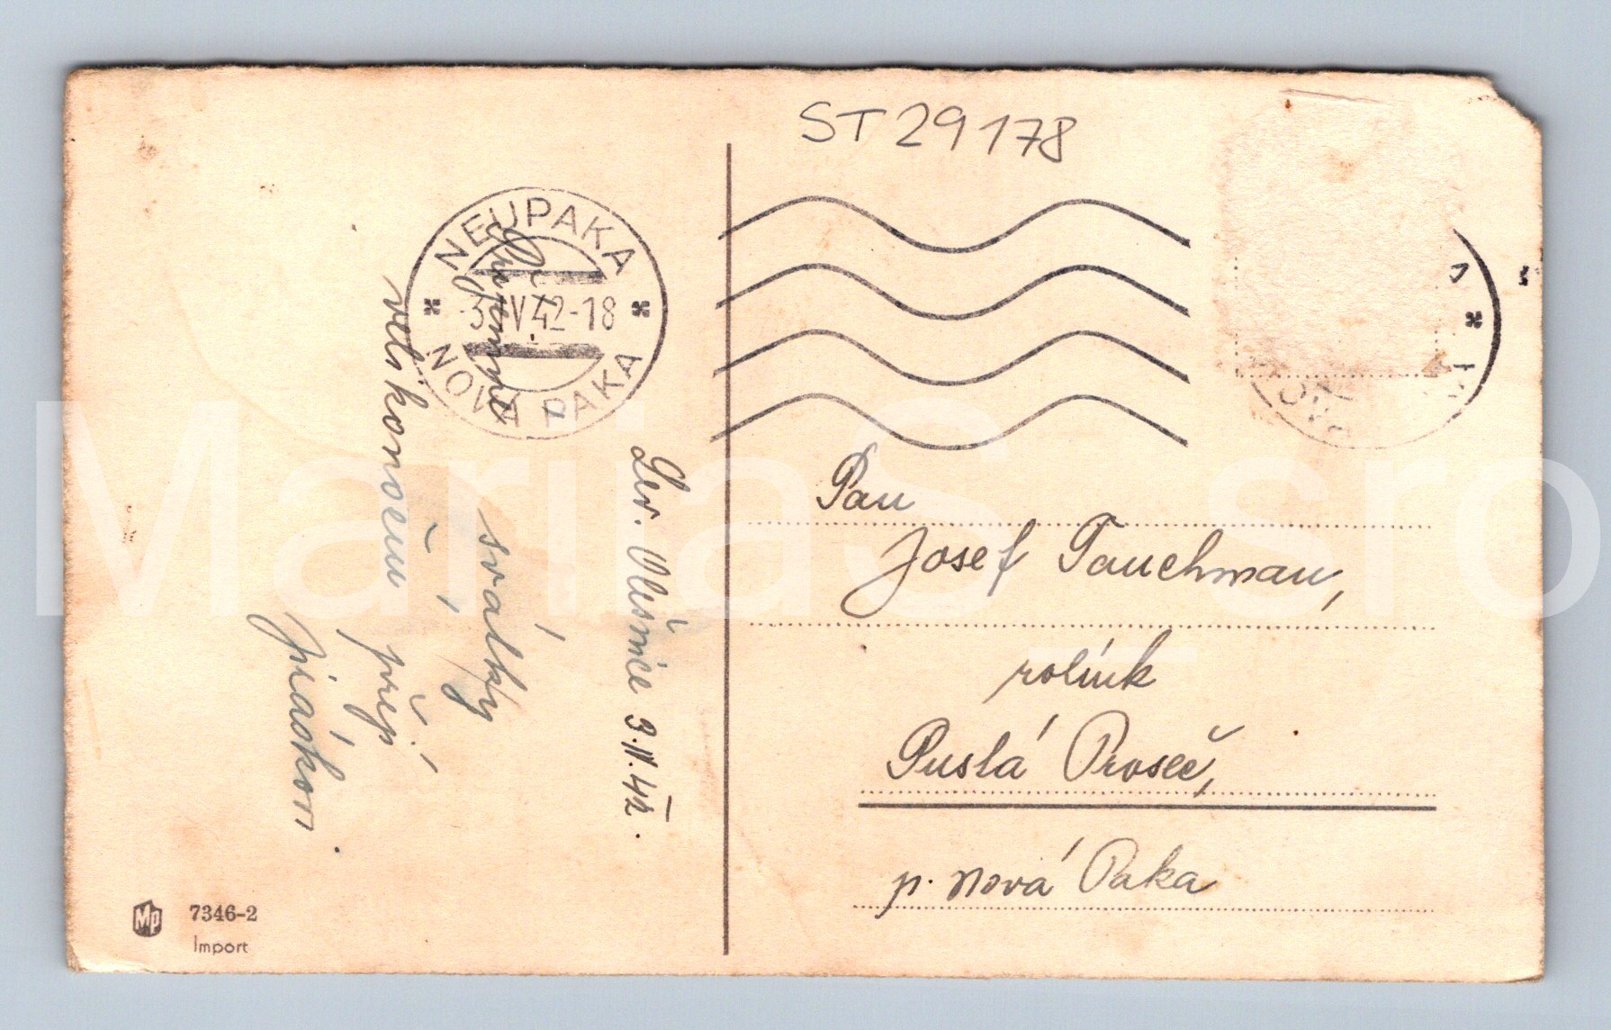 ST 29178
NEUPAKA
3. IV 42-18
NOVÁ PAKA
Lev. Olešnice 3.IV.42.
svátky
velikonoční přejí
Pan
Josef Tauchman,
rolník
Pustá Proseč,
p. Nová Paka
MP 7346-2
Import
MariaS_sro